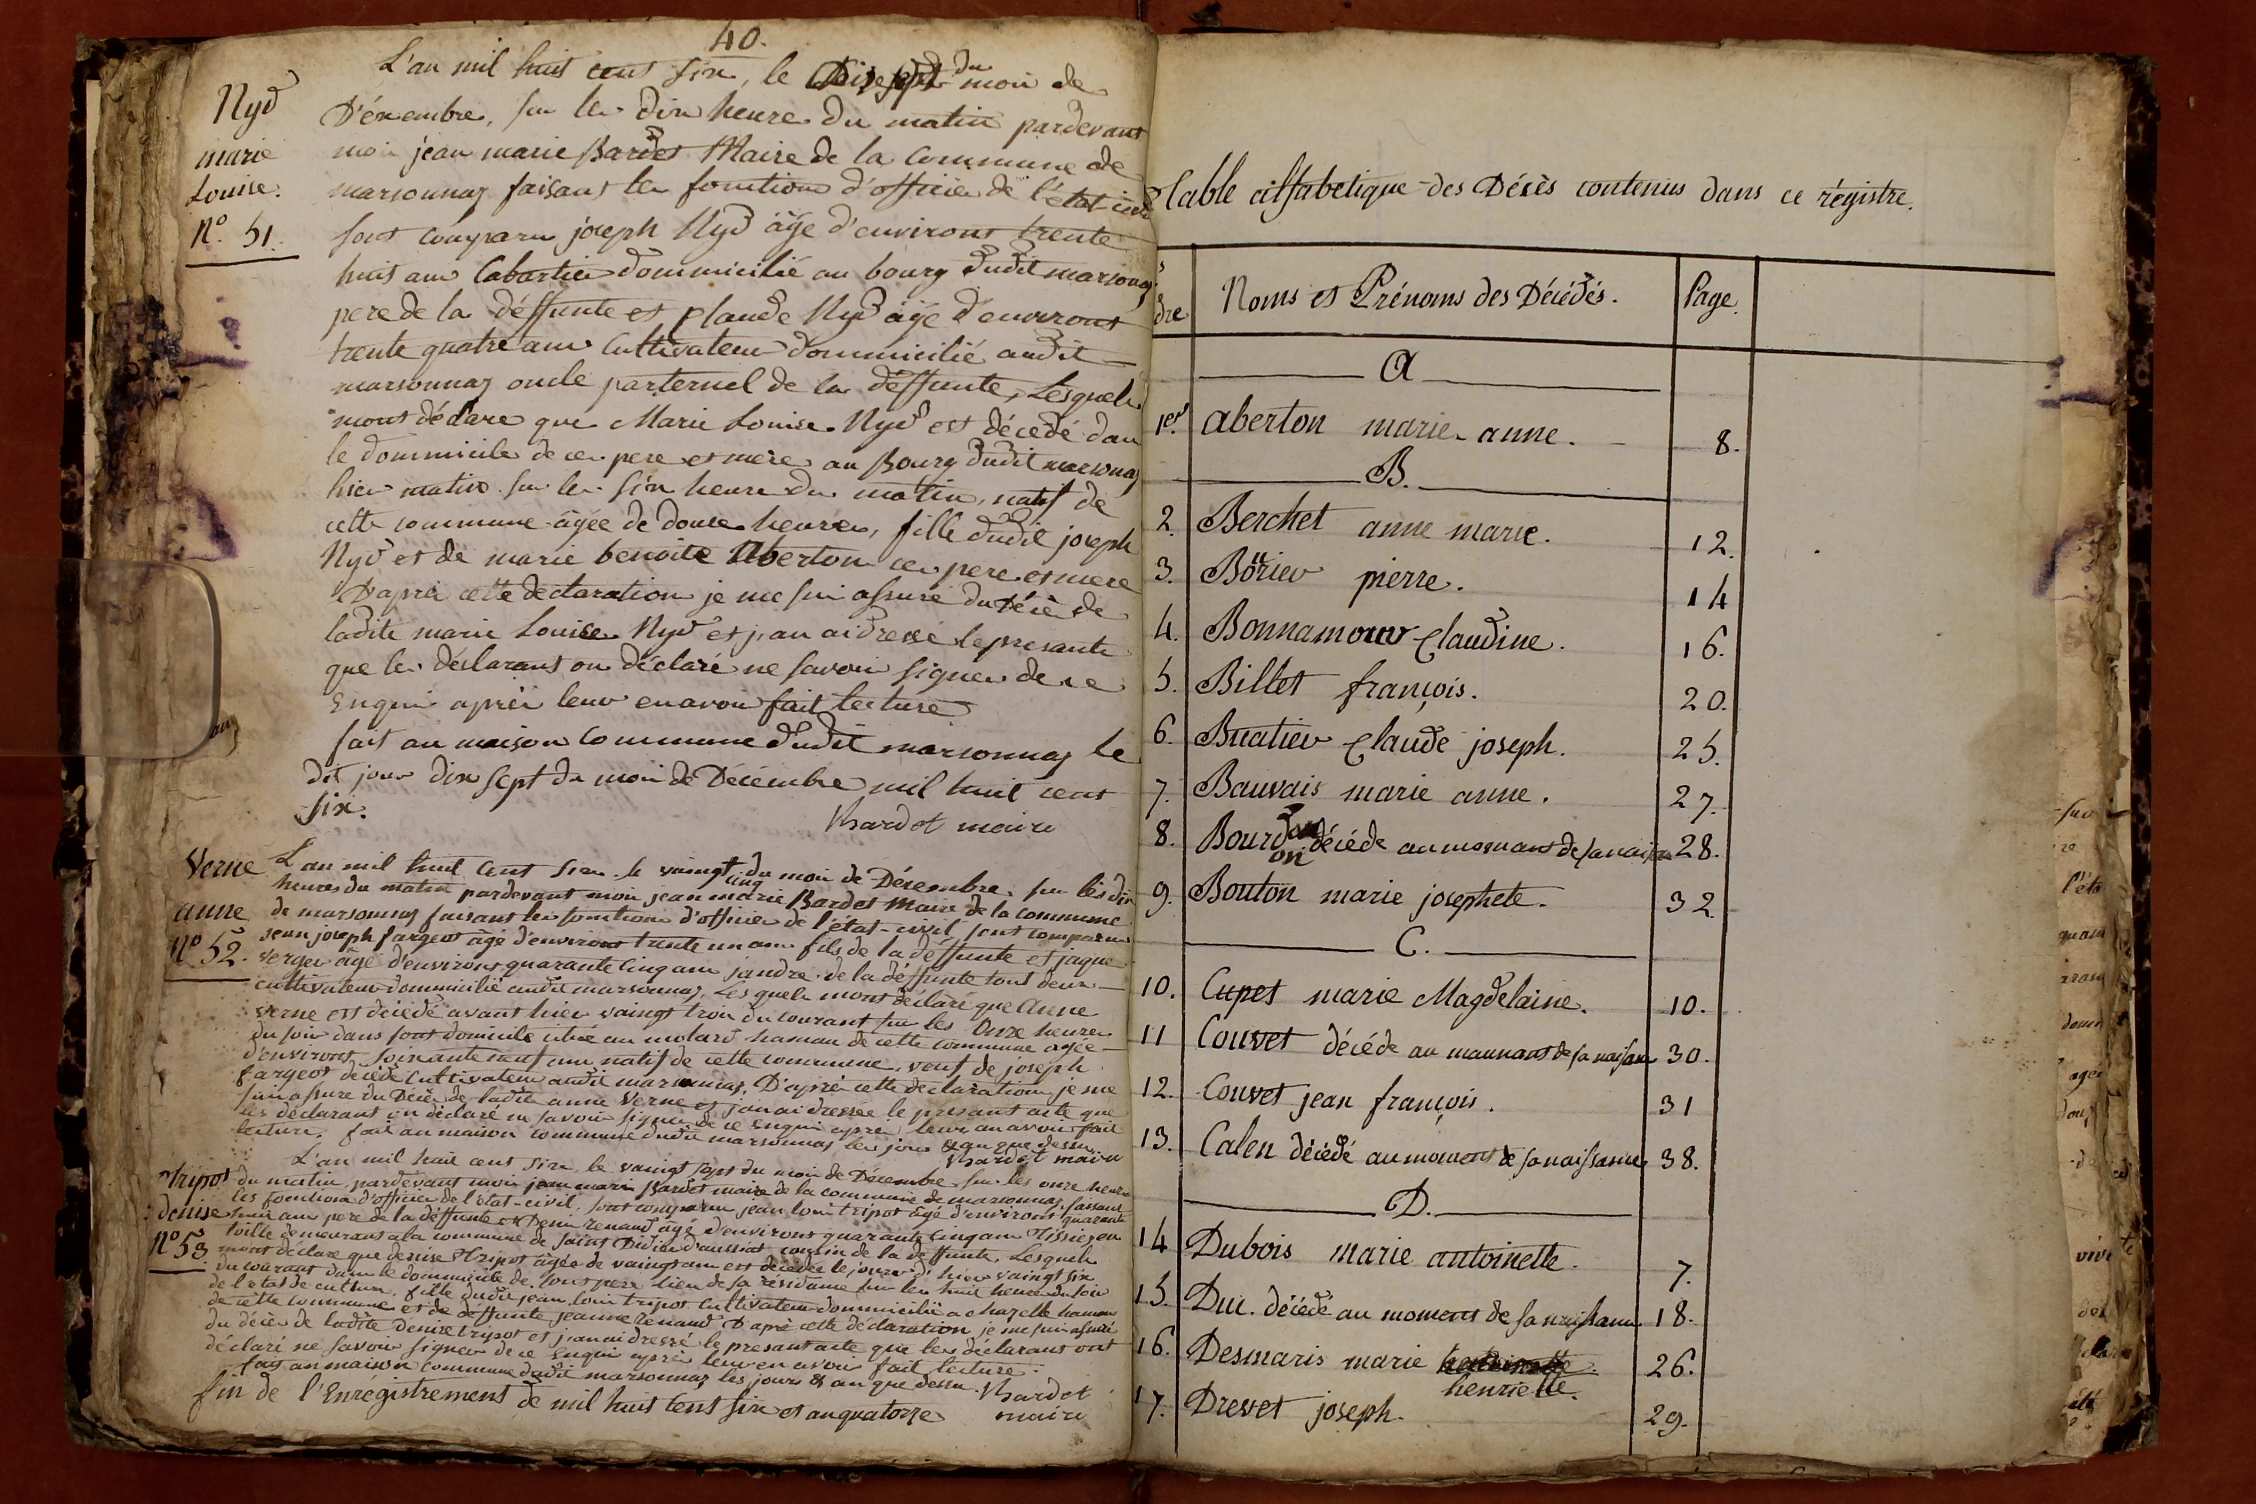 40.
L'an mil huit cent six, le Dix sept du moi de
Décembre, sur les dix heure du matin pardevant
moi jean marie Bardet Maire de la Commune de
marsonnaz faisant les fonction d'officie de l'état-civil
sont comparu joseph Nyd âge d'environt trente
huit ans Cabartier dommicilié au bourg dudit marsonaz
pere de la déffunte et Claude Nyd âgé d'environt
trente quatre ans Cultivateur dommicilié audit
marsonnaz oncle parternel de la déffunte, Lesquels
mont déclare que Marie Louise Nyd est décedé dans
le dommicile de ces pere et mere au Bourg dudit marsonaz
hier matin sur les six heure du matin, natif de
cette commune âgée de douse heures, fille dudit joseph
Nyd et de marie benoite Aberton ces pere et mere
D'aprés cette declaration je me sui assure du décè de
ladite marie Louise Nyd et jan ai dressé le presante
que les déclarant on déclaré ne savoir signer de ce
Enquis aprèi leur en avoir fait lecture
fait an maison Commune dudit marsonnaz le
dit jour dix sept du moi de Décembre mil huit cent
six.
Bardet maire
Nyd
marie
Louise.
N.º 51.
Verne
anne
Nº 52.
L'an mil huit cent six le vaingt cinq du moi de Décembre sur les dix
heures du matin pardevant moi jean marie Bardet Maire de la commune
de marsonnaz faisant les fonction d'officier de l'état-civil sont comparu
jean joseph fargeot âgé d'environt trente un ans fils de la déffunte et jaque
verger âgé d'environt quarante cinq ans jandre de la déffunte tout deux
cultivateur dommicilié audit marsonnaz, Lesquels mont déclaré que Anne
verne est décédé avant hier vaingt troi du courant sur les Onze heures
du soir dans sont domicile citué au molard hamau de cette commune agée
d'environt soixante neuf ans natif de cette commune, veuf de joseph
fargeot décédé Cultivateur audit marsonnaz, D'après cette declaration je me
sui assure du Décè de ladite anne Verne et jan ai dressée le presant acte que
les déclarant on déclaré ne savoir signer de ce Enquis après leur an avoir fait
lecture. fait an maison commune dudit marsonnaz les jour & an que dessu
Bardet maire
tripot
denise
Nº 53
L'an mil huit cent six, le vaingt sept du moi de Décembre, sur les onze heure
du matin, pardevant moi jean marie Bardet maire de la commune de marsonnaz faisant
les fonction d'officier de l'état-civil, sont comparu jean loui tripot âgé d'environt quarante
huit ans pere de la déffunte et Deni renaud âgé d'environt quarante cinq ans Tissier en
toille demeurant a la commune de saint Didier d'aussiat cousin de la deffunte, Lesquels
mont déclare que denise tripot âgée de vaingt ans est decedée le jour d'hier vaingt six
du courant dans le dommicile de sont pere lieu de sa residance sur les huit heure du soir
de l'état de culture, fille dudit jean loui tripot Cultivateur dommicilié a charelle hamau
de cette commune et de deffunte jeanne renaud D'après cette déclaration je me sui assuré
du décè de ladite Denise tripot et j'an ai dressé le presant acte que les déclarant ont
déclaré ne savoir signer de ce Enquis après leur en avoir fait lecture.
fait an maison commune dudit marsonnaz les jours & an que dessu. Bardet
maire
fin de l'Enrégistrement de mil huit cent six et an quatorze
Table alfabetique des Décès contenus dans ce régistre.
dre Noms et Prénoms des Décédés. Page.
A
1er. aberton marie anne. 8.
B.
2. Berchet anne marie. 12.
3. Börier pierre. 14
4. Bonnamour Claudine. 16.
5. Billet françois. 20.
6. Buatier Claude joseph. 25.
7. Bauvais marie anne. 27.
8. Bourdon décéde au momant de sa naissan 28.
on
9. Bouton marie josephete. 32
C.
10. Cupet marie Magdelaine. 10.
11 Couvet décéde au maumant de sa naisan 30.
12. Couvet jean françois. 31
13. Calen décédé au moment de sa naissance 38.
D.
14 Dubois marie antoinette. 7.
15. Duc. décédé au moment de sa naissance 18.
16. Desmaris marie henriette. 26.
17. Drevet joseph. 29.